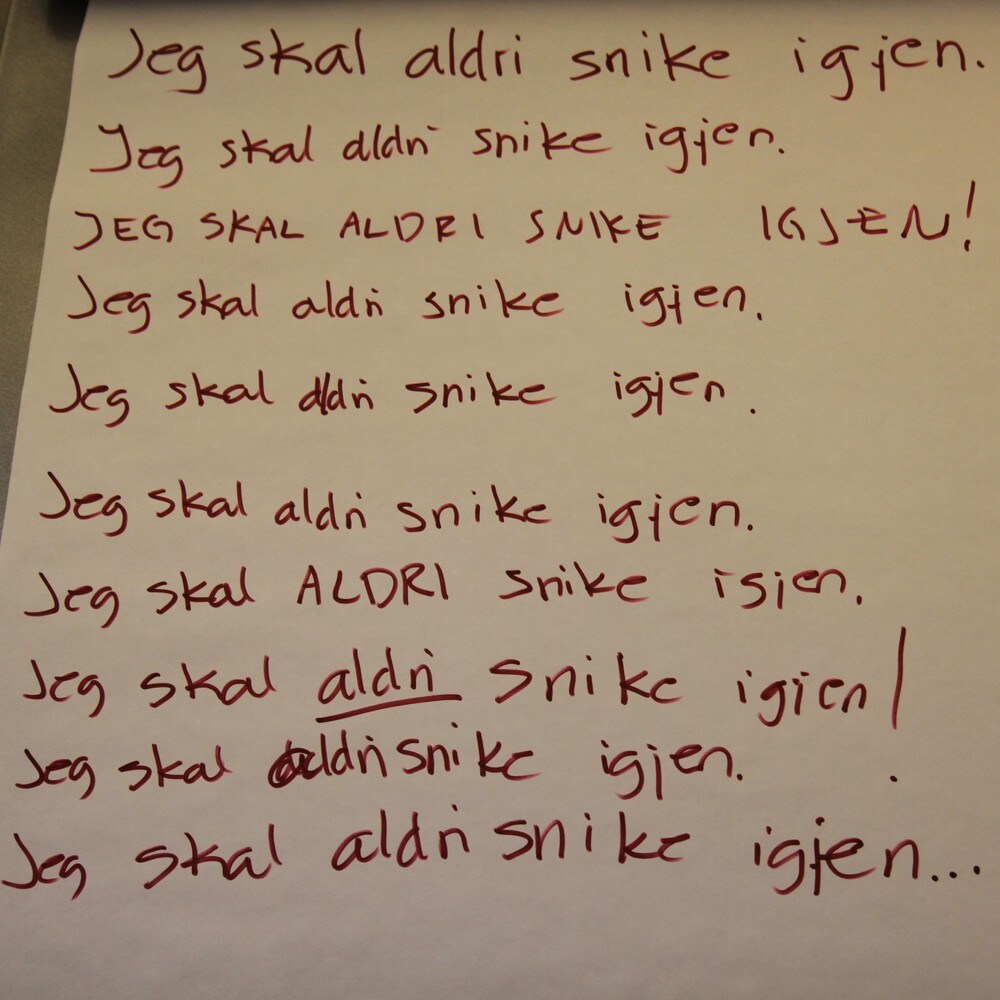 Jeg skal aldri snike igjen.
Jeg skal aldri snike igjen.
JEG SKAL ALDRI SNIKE IGJEN!
Jeg skal aldri snike igjen.
Jeg skal aldri snike igjen.
Jeg skal aldri snike igjen.
Jeg skal ALDRI snike igjen.
Jeg skal aldri snike igjen!
Jeg skal aldri snike igjen.
Jeg skal aldri snike igjen...